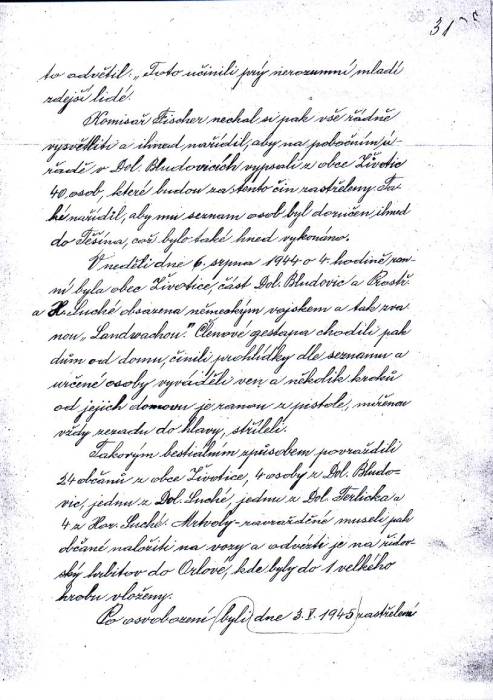 31
to odvětil: „Toto učinili prý nerozumní mladí
zdejší lidé.
Komisař Fischer nechal si pak vše řádně
vysvětliti a ihned nařídil, aby na pobočním ú-
řadě v Dol. Bludovicích vypsali z obce Životic
40 osob, které budou za tento čin zastřeleny. Ta-
ké nařídil, aby mu seznam osob byl doručen ihned
do Těšína, což bylo také hned vykonáno.
V neděli dne 6. srpna 1944 o 4. hodině ran-
ní byla obec Životice, část Dol. Bludovic a Prostř.
a H. Suché obsazena německým vojskem a tak zva-
nou „Landwachou". Členové gestapa chodili pak
dům od domu, činili prohlídky dle seznamu a
určené osoby vyváděli ven a několik kroků
od jejich domovu je ranou z pistole, mířenou
vždy zezadu do hlavy, stříleli.
Takovým bestiálním způsobem povraždili
24 občanů z obce Životice, 4 osoby z Dol. Bludo-
vic, jednu z Dol. Suché, jednu z Dol. Terlicka a
4 z Hor. Suché. Mrtvoly zavražděné museli pak
občané naložiti na vozy a odvézti je na židov-
ský hřbitov do Orlové, kde byly do 1 velkého
hrobu vloženy.
Po osvobození (byli) dne 3. V. 1945) zastřelení